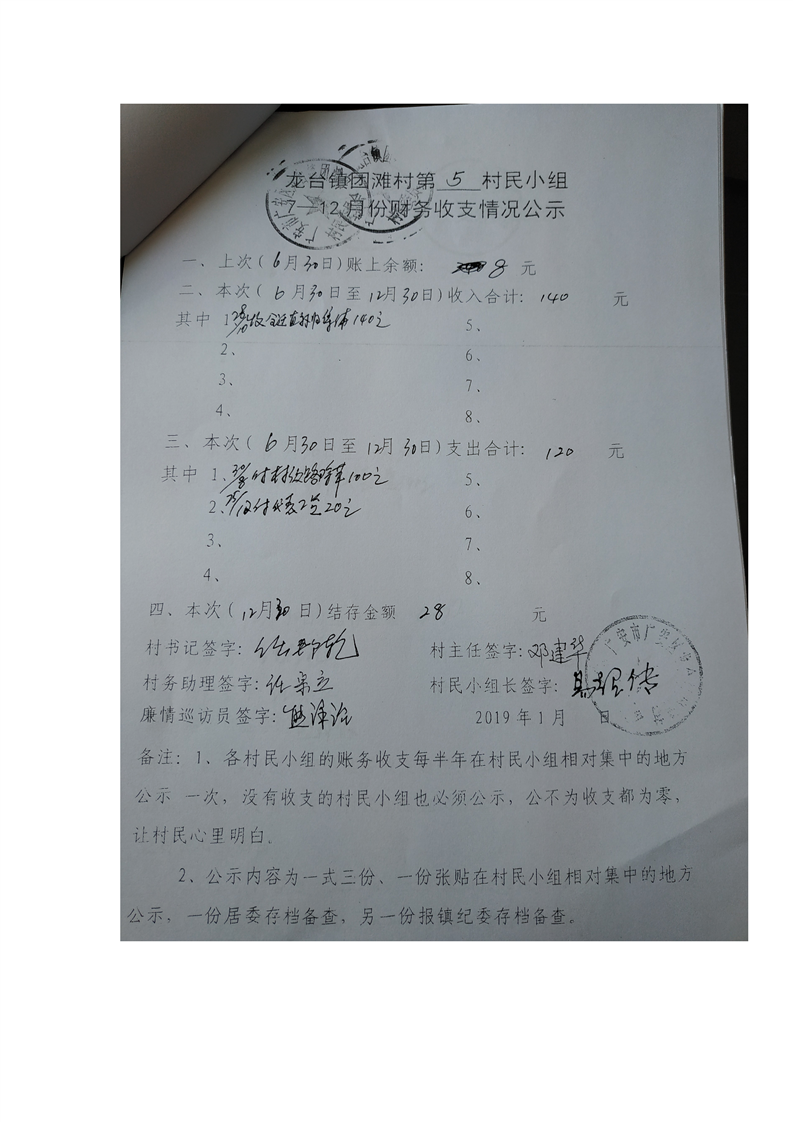 龙台镇团滩村第 5 村民小组
7—12月份财务收支情况公示
一、上次(6月30日)账上余额: 8 元
二、本次( 6 月30日至12月30日)收入合计: 140 元
其中 1、 140元 5、
2、 6、
3、 7、
4、 8、
三、本次( 6月30日至12月30日)支出合计: 120 元
其中 1、 付村 100元 5、
2、 付代表 20元 6、
3、 7、
4、 8、
四、本次(12月30日)结存金额 28 元
村书记签字: 村主任签字:邓建华
村务助理签字: 村民小组长签字:
廉情巡访员签字: 2019年1月 日
备注:1、各村民小组的账务收支每半年在村民小组相对集中的地方
公示 一次,没有收支的村民小组也必须公示,公不为收支都为零,
让村民心里明白。
2、公示内容为一式三份、一份张贴在村民小组相对集中的地方
公示,一份居委存档备查,另一份报镇纪委存档备查。